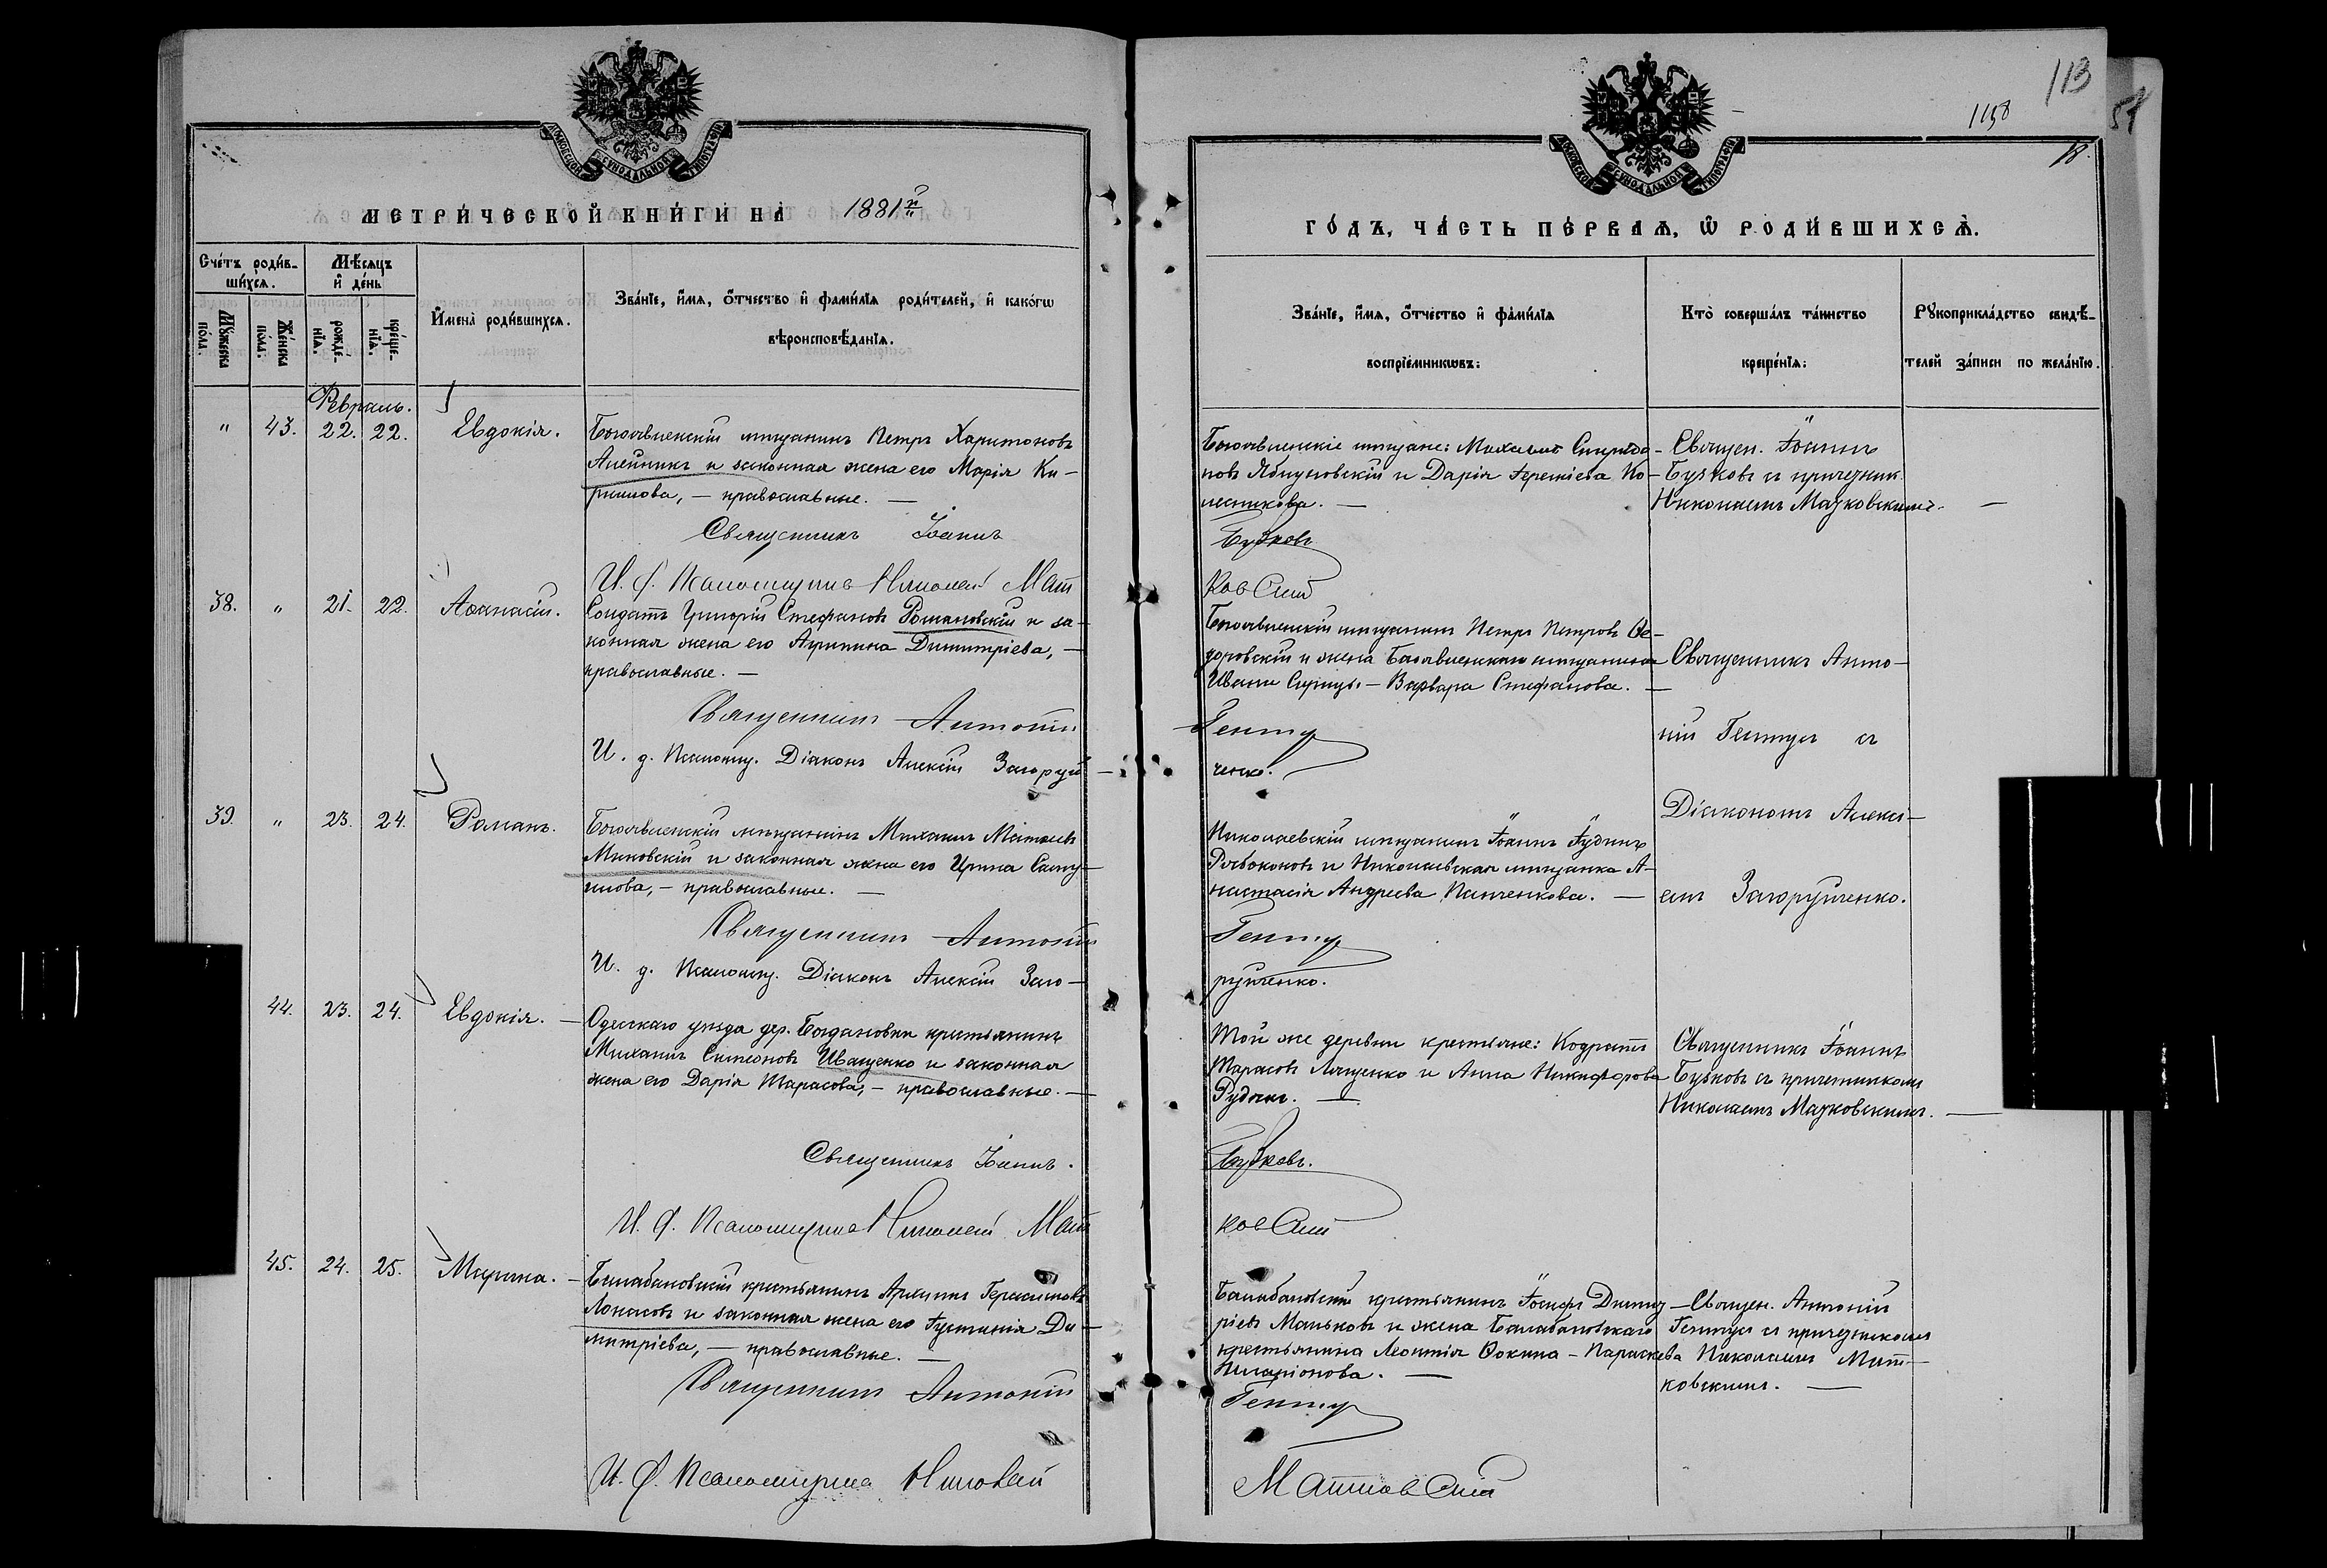 113
1158
57
18.
МОСКОВСКОЙ СѴНОДАЛЬНОЙ ТИПОГРАФІИ
МОСКОВСКОЙ СѴНОДАЛЬНОЙ ТИПОГРАФІИ
МЕТРИ́ЧЕСКОЙ КНИ́ГИ НА̀ 1881й
ГО́ДЪ, ЧА́СТЬ ПЕ́РВАѦ, Ѡ РОДИ́ВШИХСѦ.
Сче́тъ роди́в-
ши́хсѧ.
Мѣ́сѧцъ
и҆ де́нь
Му́жеска
по́ла.
Же́нска
по́ла.
рожде́-
нїѧ.
креще́-
нїѧ.
И҆мена̀ роди́вшихсѧ.
Зва́нїе, и҆́мѧ, ѻ҆́тчество и҆ фамі́лїѧ роди́телей, и҆ како́гѡ
вѣроисповѣ́данїѧ.
Зва́нїе, и҆́мѧ, ѻ҆́тчество и҆ фамі́лїѧ
воспрїе́мникѡвъ:
Кто̀ соверша́лъ та́инство
креще́нїѧ:
Рꙋкоприкла́дство свидѣ́-
телей за́писи по жела́нїю.
Февраль.
" 43. 22. 22. Евдокія.
Богоявленскій мѣщанинъ Петръ Харитоновъ
Алейникъ и законная жена его Марія Ки-
рилова, – православные. –
Священникъ Іоаннъ
И. д. Псаломщика Николай Мат
Богоявленскіе мѣщане: Михаилъ Спиридо-
новъ Яблуновскій и Дарія Іереміева Ко-
лесникова. –
Бучковъ
ковскій
Священ. Іоаннъ
Бучковъ съ причетник.
Николаемъ Матковскимъ. –
38. " 21. 22. Аѳанасій.
Солдатъ Григорій Стефановъ Романовскій и за-
конная жена его Агрипина Димитріева, –
православные. –
Священникъ Антоній
И. д. Псаломщ. Діаконъ Алексій Загоруй –
Богоявленскій мѣщанинъ Петръ Петровъ Ѳе-
доровскій и жена Богоявленскаго мѣщанина
Ивана Сирицы – Варвара Стефанова. –
Гентуръ
ченко.
Священникъ Анто-
ній Гентуръ съ
Діакономъ Алексі-
емъ Загоруйченко.
39. " 23. 24. Романъ.
Богоявленскій мѣщанинъ Михаилъ Матвѣевъ
Миковскій и законная жена его Ирина Саму-
илова, – православные. –
Священникъ Антоній
И. д. Псаломщ. Діаконъ Алексій Заго –
Николаевскій мѣщанинъ Іоаннъ Іудинъ
Рябоконовъ и Николаевская мѣщанка А-
настасія Андреева Панченкова. –
Гентуръ
руйченко.
44. 23. 24. Евдокія. –
Одесскаго уѣзда дер. Богдановки крестьянинъ
Михаилъ Симеоновъ Иващенко и законная
жена его Дарія Тарасова, – православные. –
Священникъ Іоаннъ.
И. д. Псаломщика Николай Мат
Той же деревни крестьяне: Кодратъ
Тарасовъ Лященко и Анна Никифорова
Рудычъ. –
Бучковъ.
ковскій
Священникъ Іоаннъ
Бучковъ съ причетникомъ
Николаемъ Матковскимъ. –
45. 24. 25. Марина. –
Балабановскій крестьянинъ Архипъ Герасимовъ
Лонасовъ и законная жена его Іустинія Ди-
митріева, – православные. –
Священникъ Антоній
И. д. Псаломщика Николай
Балабановскій крестьянинъ Іосифъ Димит-
ріевъ Маньковъ и жена Балабановскаго
крестьянина Леонтія Ѳокина – Параскева
Иларіонова. –
Гентуръ
Матковскій
Священ. Антоній
Гентуръ съ причетникомъ
Николаемъ Мат-
ковскимъ. –